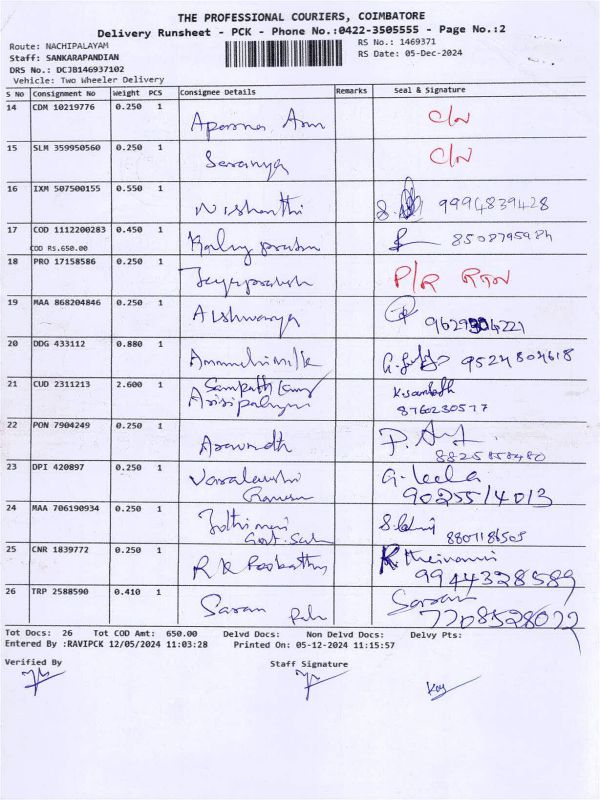 THE PROFESSIONAL COURIERS, COIMBATORE
Delivery Runsheet - PCK - Phone No.:0422-3505555 - Page No.:2
Route: NACHIPALAYAM
RS No.: 1469371
Staff: SANKARAPANDIAN
RS Date: 05-Dec-2024
DRS No.: DCJB146937102
Vehicle: Two Wheeler Delivery
S No Consignment No Weight PCS Consignee Details Remarks Seal & Signature
14 CDM 10219776 0.250 1
15 SLM 359950560 0.250 1 Saranya
16 IXM 507500155 0.550 1 Nishanthi 9994839428
17 COD 1112200283 0.450 1 8508795984
COD Rs.650.00
18 PRO 17158586 0.250 1 Jayaprakash P/R
19 MAA 868204846 0.250 1 Aishwarya
20 DDG 433112 0.880 1 9524804618
21 CUD 2311213 2.600 1 Sampath K.santosh
8760230577
22 PON 7904249 0.250 1 Aravindh
8825858480
23 DPI 420897 0.250 1 Varalakshmi G. leela
9025514013
24 MAA 706190934 0.250 1 Jothimani
8807186503
25 CNR 1839772 0.250 1 R K
9944328589
26 TRP 2588590 0.410 1 Saran Saran
7708528022
Tot Docs: 26 Tot COD Amt: 650.00 Delvd Docs: Non Delvd Docs: Delvy Pts:
Entered By :RAVIPCK 12/05/2024 11:03:28 Printed On: 05-12-2024 11:15:57
Verified By Staff Signature